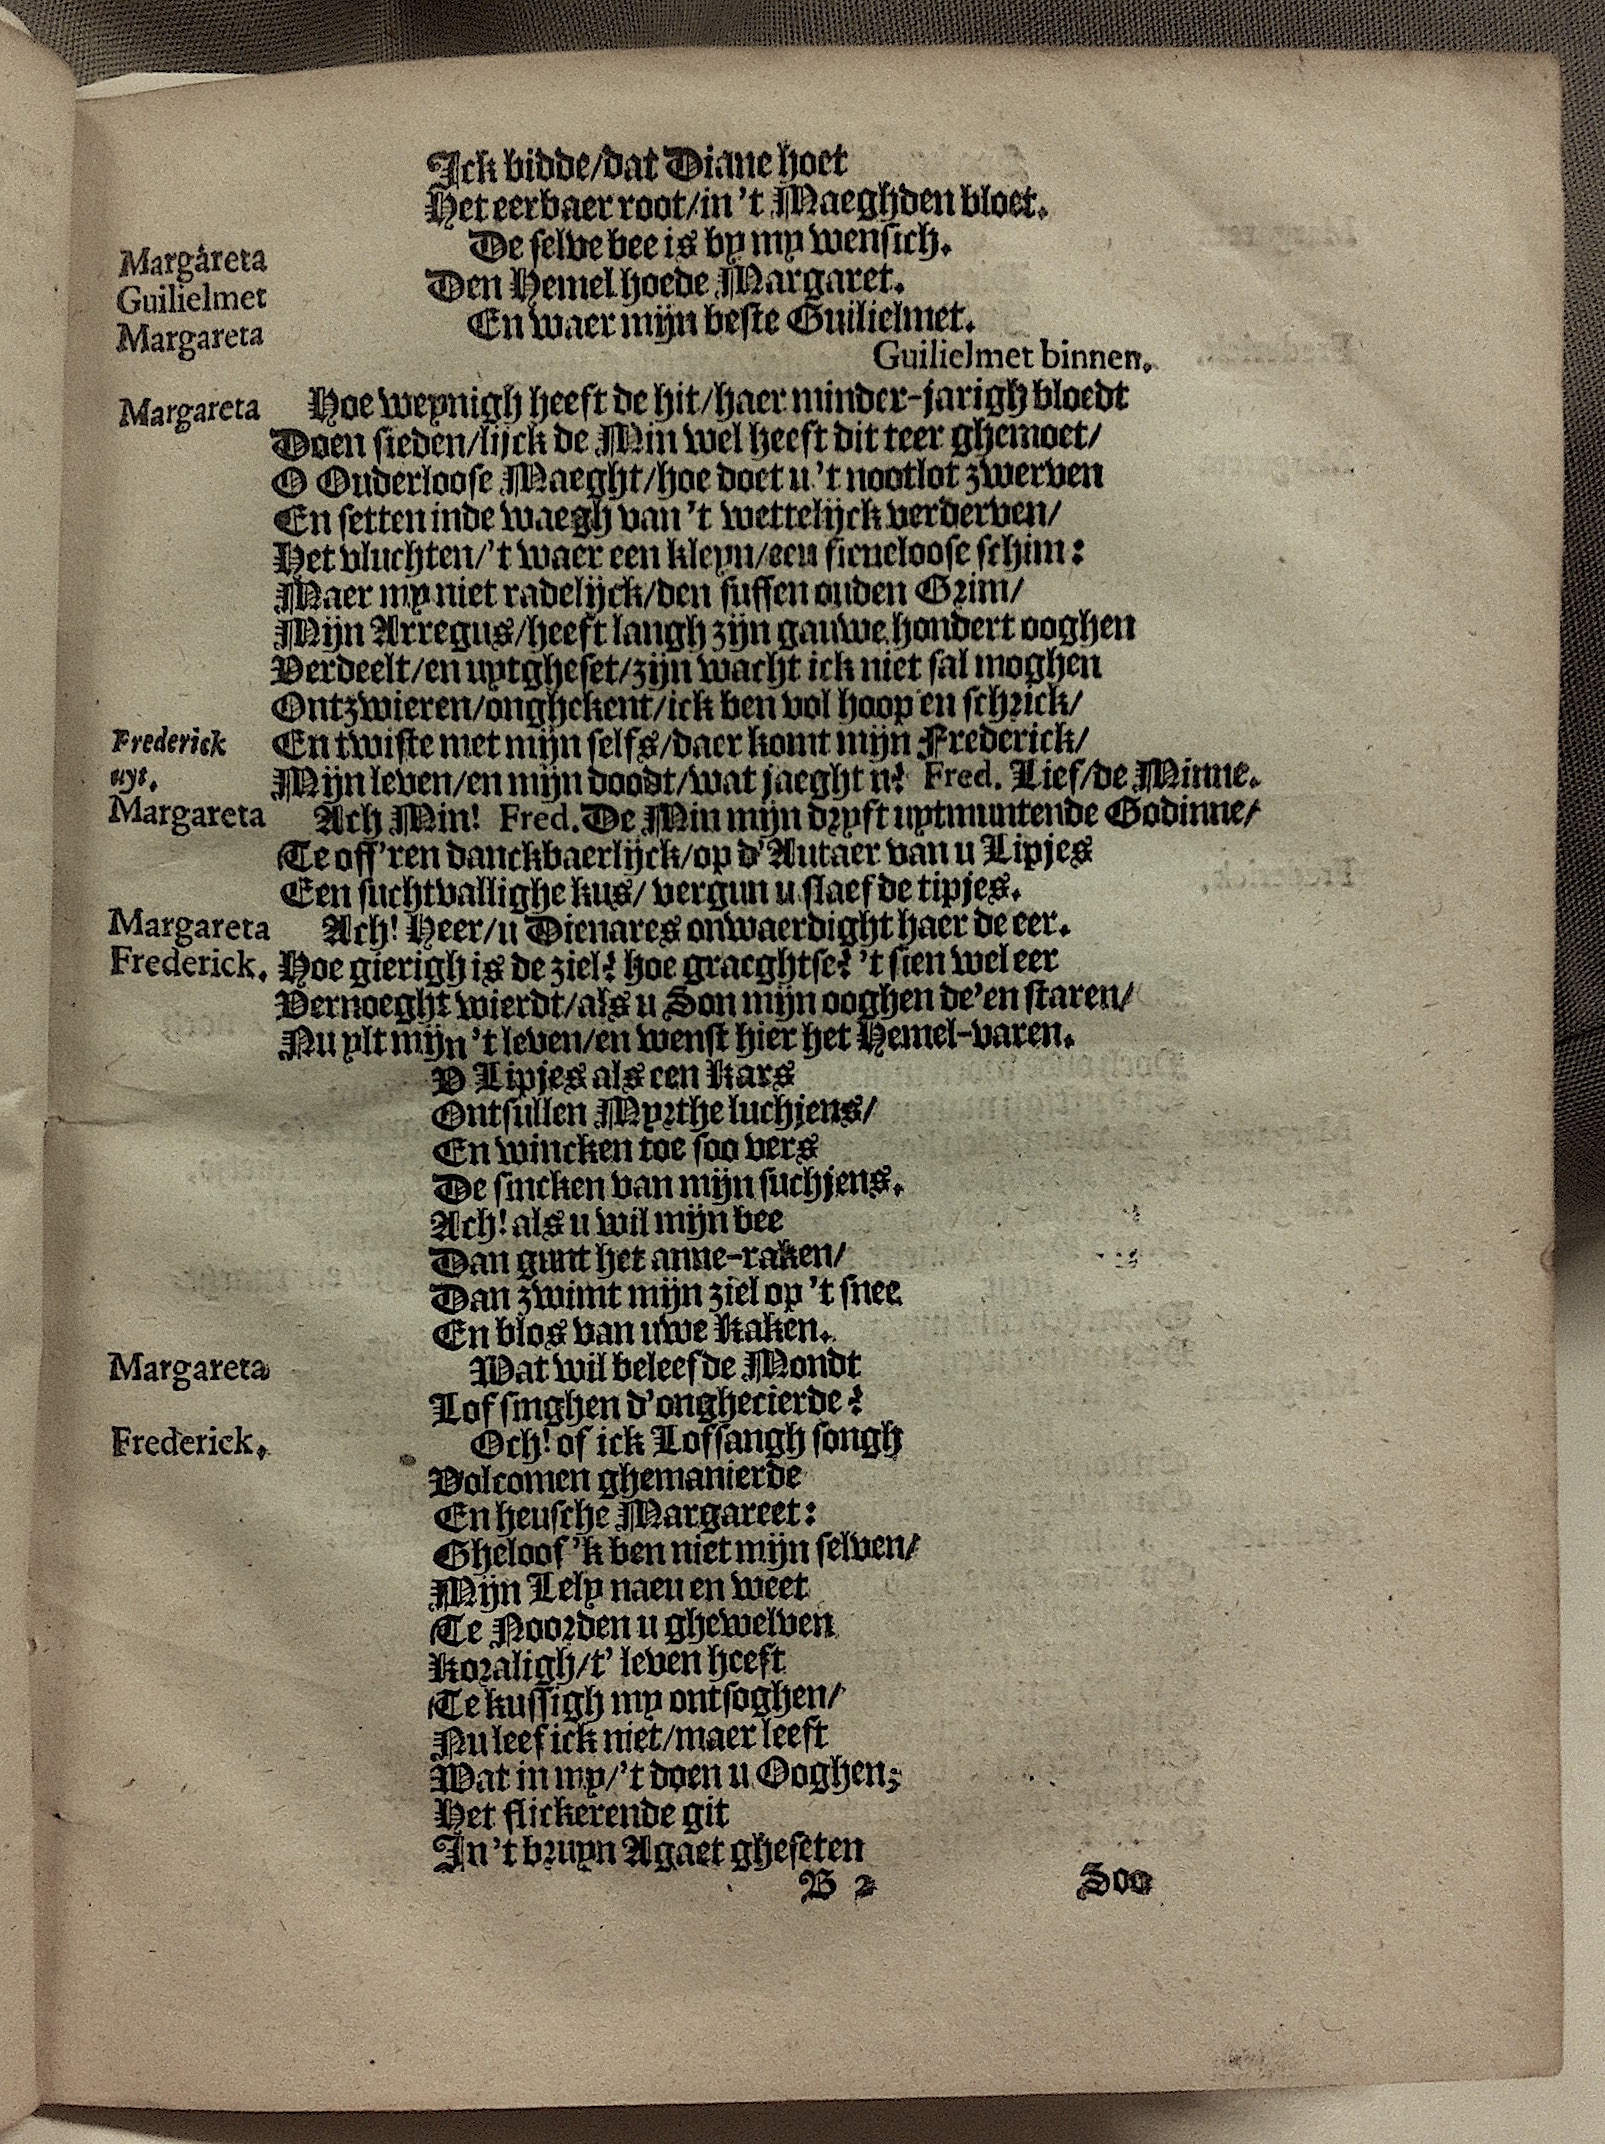 Ick bidde/dat Diane hoet
Het eerbaer root/in 't Maeghden bloet.
Margareta De selve bee is by my wensich.
Guilielmet Den Hemel hoede Margaret.
Margareta En waer mijn beste Guilielmet.
Guilielmet binnen.
Margareta Hoe weynigh heeft de hit/haer minder-jarigh bloedt
Doen sieden/lijck de Min wel heeft dit teer ghemoet/
O Ouderloose Maeght/hoe doet u 't nootlot zwerven
En setten inde waegh van 't wettelijck verderven/
Het vluchten/'t waer een kleyn/een sieneloose schim:
Maer my niet radelijck/den suffen ouden Grim/
Mijn Arregus/heeft langh zijn gauwe hondert ooghen
Verdeelt/en uytgheset/zijn wacht ick niet sal moghen
Ontzwieren/onghekent/ick ben vol hoop en schrick/
Frederick En twiste met mijn selfs/daer komt mijn Frederick/
uyt. Mijn leven/en mijn doodt/wat jaeght u? Fred. Lief/de Minne.
Margareta Ach Min! Fred. De Min mijn dryft uytmuntende Godinne/
Te off'ren danckbaerlijck/op d'Autaer van u Lipjes
Een suchtvallighe kus/ vergun u slaef de tipjes.
Margareta Ach! Heer/u Dienares onwaerdight haer de eer.
Frederick. Hoe gierigh is de ziel? hoe graeghtse? 't sien wel eer
Vernoeght wierdt/als u Son mijn ooghen de'en staren/
Nu ylt mijn 't leven/en wenst hier het Hemel-varen.
V Lipjes als een Kars
Ontsullen Myrthe luchjens/
En wincken toe soo vers
De sincken van mijn suchjens.
Ach! als u wil mijn bee
Dan gunt het anne-raken/
Dan zwimt mijn ziel op 't snee
En blos van uwe Kaken.
Margareta Wat wil beleefde Mondt
Lof singhen d'onghecierde?
Frederick. Och! of ick Lofsangh songh
Volcomen ghemanierde
En heusche Margareet:
Gheloof 'k ben niet mijn selven/
Mijn Lely naeu en weet
Te Noorden u ghewelven
Koraligh/t' leven heeft
Te kussigh my ontsoghen/
Nu leef ick niet/maer leeft
Wat in my/'t doen u Ooghen;
Het flickerende git
In 't bruyn Agaet gheseten
B 2 Soo